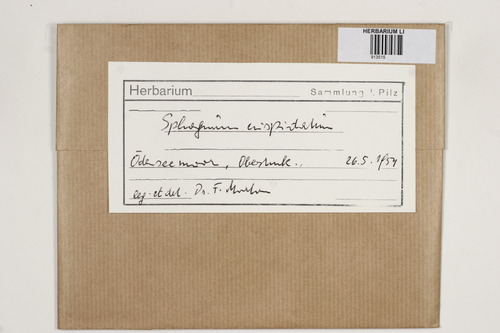 HERBARIUM LI
913575
Herbarium
Sammlung I. Pilz
Sphagnum cuspidatum
Ödenseemoor, Obersteierm., 26.5.1954
leg. et det. Dr. F. Morton